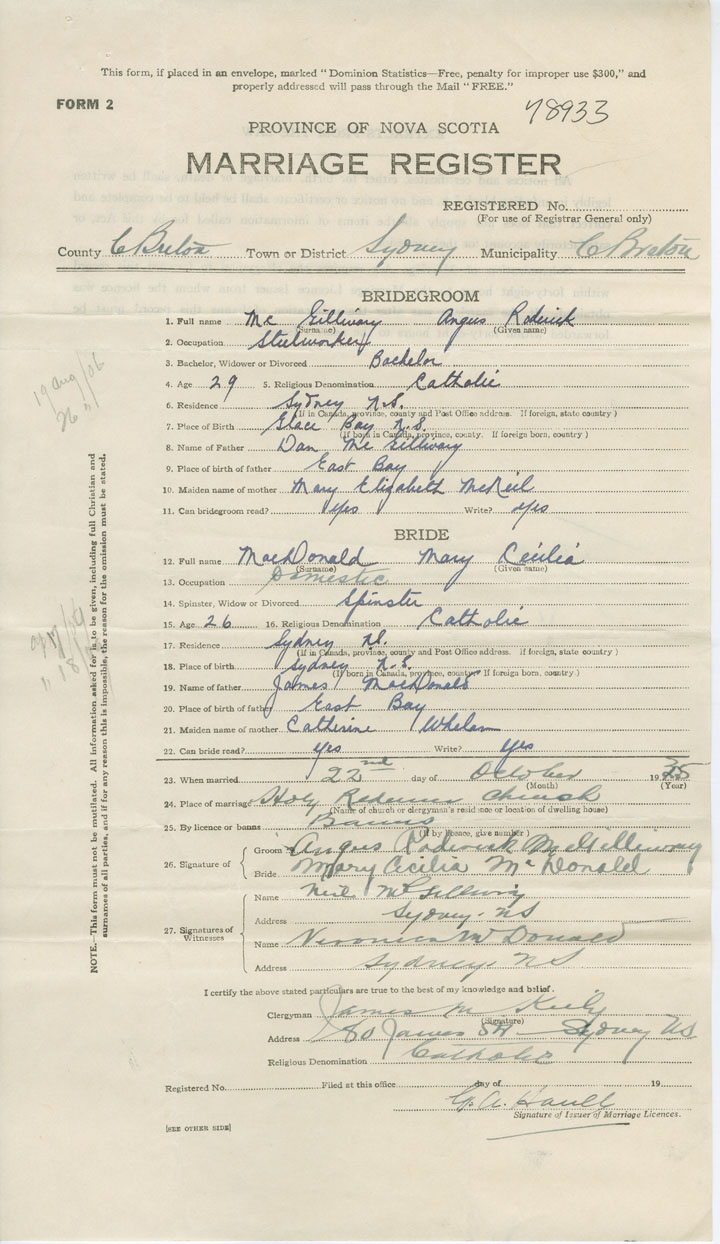 This form, if placed in an envelope, marked "Dominion Statistics—Free, penalty for improper use $300," and
properly addressed will pass through the Mail "FREE."
FORM 2
78933
PROVINCE OF NOVA SCOTIA
MARRIAGE REGISTER
REGISTERED No.
(For use of Registrar General only)
County C Breton Town or District Sydney Municipality C Breton
BRIDEGROOM
1. Full name Mc Gillivary Angus Roderick
(Surname) (Given name)
2. Occupation Steelworker
3. Bachelor, Widower or Divorced Bachelor
4. Age 29 5. Religious Denomination Catholic
6. Residence Sydney N.S.
(If in Canada, province, county and Post Office address. If foreign, state country)
7. Place of Birth Glace Bay N.S.
(If born in Canada, province, county. If foreign born, country)
8. Name of Father Dan Mc Gillivary
9. Place of birth of father East Bay
10. Maiden name of mother Mary Elizabeth McNeil
11. Can bridegroom read? yes Write? yes
BRIDE
12. Full name MacDonald Mary Cecilia
(Surname) (Given name)
13. Occupation Domestic
14. Spinster, Widow or Divorced Spinster
15. Age 26 16. Religious Denomination Catholic
17. Residence Sydney N.S.
(If in Canada, province, county and Post Office address. If foreign, state country)
18. Place of birth Sydney N.S.
(If born in Canada, province, county. If foreign born, country.)
19. Name of father James MacDonald
20. Place of birth of father East Bay
21. Maiden name of mother Catherine Whelan
22. Can bride read? yes Write? yes
23. When married 22nd day of October 19
(Month) (Year)
24. Place of marriage Holy Redeemer Church
(Name of church or clergyman's residence or location of dwelling house)
25. By licence or banns Banns
(If by licence, give number)
26. Signature of
Groom Angus Roderick McGillivray
Bride Mary Cicilia McDonald
27. Signatures of Witnesses
Name Neil
Address Sydney. NS
Name Veronica McDonald
Address Sydney NS
I certify the above stated particulars are true to the best of my knowledge and belief.
Clergyman James M Kiely
(Signature)
Address 80 James St — Sydney NS
Religious Denomination Catholic
Registered No. Filed at this office day of 19
Signature of Issuer of Marriage Licences.
[SEE OTHER SIDE]
NOTE.—This form must not be mutilated. All information asked for is to be given, including full Christian and
surnames of all parties, and if for any reason this is impossible, the reason for the omission must be stated.
19 Aug/06